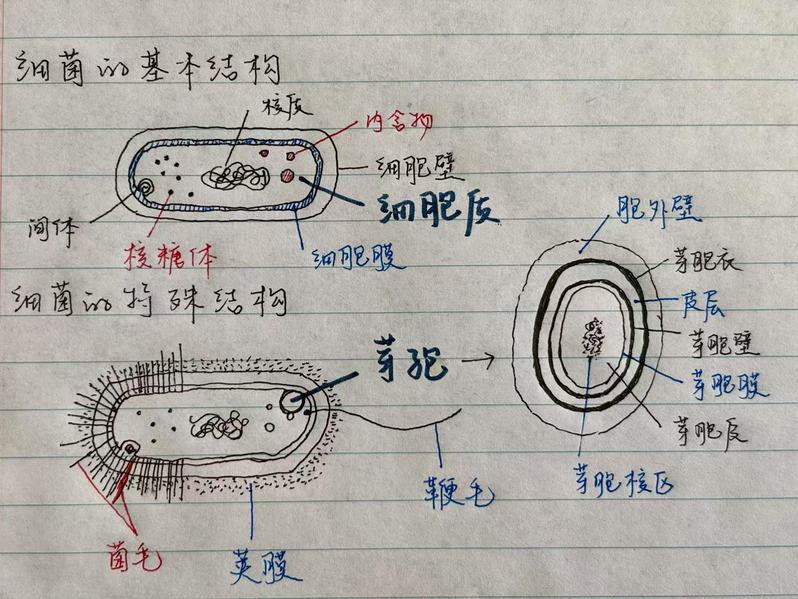 细菌的基本结构
核质
内含物
细胞壁
细胞质
间体
核糖体
细胞膜
细菌的特殊结构
胞外壁
芽胞衣
皮层
芽孢
芽胞壁
芽胞膜
芽胞质
芽胞核区
鞭毛
菌毛
荚膜